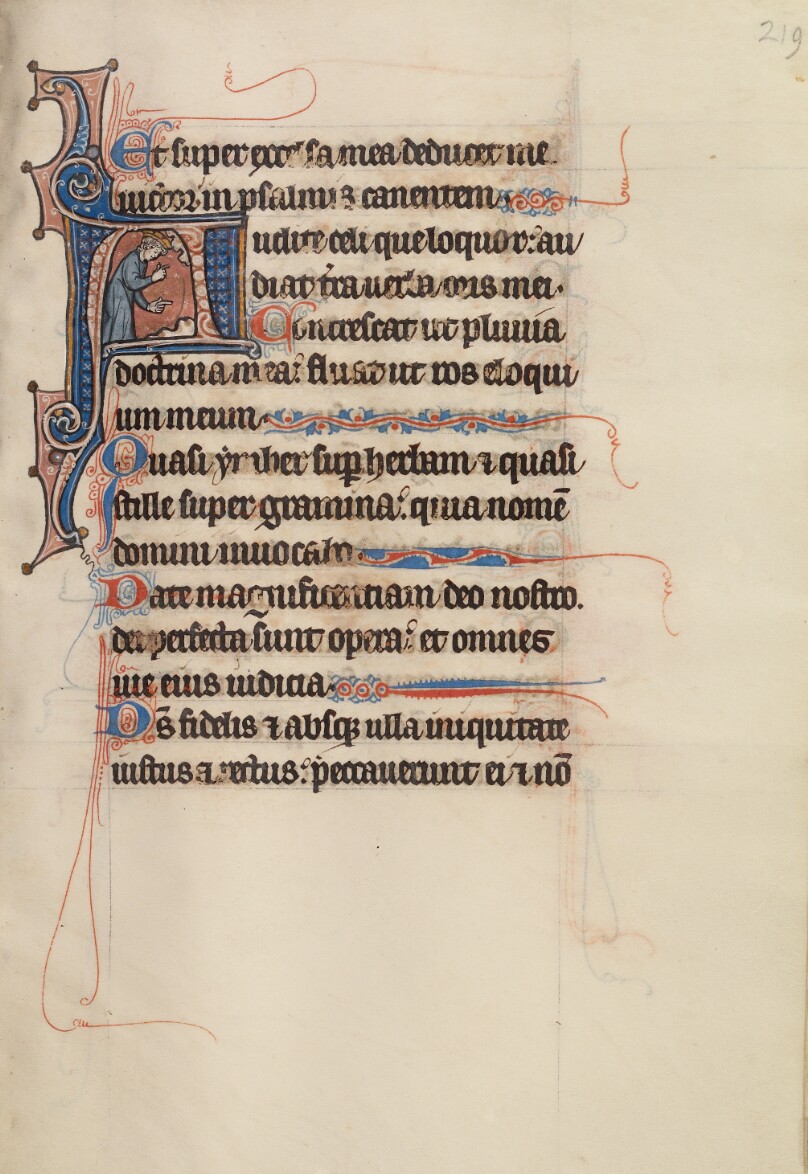 219
Et super excelsa mea deducet me
uictor in psalmis canentem
Audite celi que loquor: au
diat terra uerba oris mei.
Concrescat ut pluuia
doctrina mea: fluat ut ros eloqui
um meum.
Quasi ymber sup herbam ⁊ quasi
stille super gramina: quia nomē
domini inuocabo.
Date magnificentiam deo nostro.
dei perfecta sunt opera: et omnes
uie eius iudicia.
Ds̄ fidelis ⁊ absqꝫ ulla iniquitate
iustus ⁊ rectus: peccauerunt ei ⁊ nō